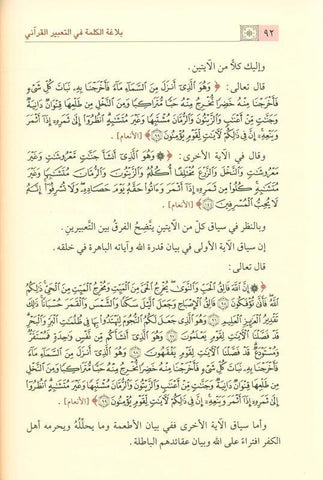 ٩٢ بلاغة الكلمة في التعبير القرآني
وإليك كلاً من الآيتين.
قال تعالى: ﴿وَهُوَ الَّذِي أَنزَلَ مِنَ السَّمَاءِ مَاءً فَأَخْرَجْنَا بِهِ نَبَاتَ كُلِّ شَيْءٍ
فَأَخْرَجْنَا مِنْهُ خَضِرًا نُّخْرِجُ مِنْهُ حَبًّا مُّتَرَاكِبًا وَمِنَ النَّخْلِ مِن طَلْعِهَا قِنْوَانٌ دَانِيَةٌ
وَجَنَّاتٍ مِّنْ أَعْنَابٍ وَالزَّيْتُونَ وَالرُّمَّانَ مُشْتَبِهًا وَغَيْرَ مُتَشَابِهٍ انظُرُوا إِلَى ثَمَرِهِ إِذَا أَثْمَرَ
وَيَنْعِهِ إِنَّ فِي ذَلِكُمْ لَآيَاتٍ لِّقَوْمٍ يُؤْمِنُونَ ﴿٩٩﴾ [الأنعام].
وقال في الآية الأخرى: ﴿وَهُوَ الَّذِي أَنشَأَ جَنَّاتٍ مَّعْرُوشَاتٍ وَغَيْرَ
مَعْرُوشَاتٍ وَالنَّخْلَ وَالزَّرْعَ مُخْتَلِفًا أُكُلُهُ وَالزَّيْتُونَ وَالرُّمَّانَ مُتَشَابِهًا وَغَيْرَ
مُتَشَابِهٍ كُلُوا مِن ثَمَرِهِ إِذَا أَثْمَرَ وَآتُوا حَقَّهُ يَوْمَ حَصَادِهِ وَلَا تُسْرِفُوا إِنَّهُ
لَا يُحِبُّ الْمُسْرِفِينَ ﴿١٤١﴾ [الأنعام].
وبالنظر في سياق كلٍّ من الآيتين يتَّضِحُ الفرقُ بين التعبيرينِ.
إن سياق الآية الأولى في بيان قدرة الله وآياته الباهرة في خلقه.
قال تعالى:
﴿إِنَّ اللَّهَ فَالِقُ الْحَبِّ وَالنَّوَى يُخْرِجُ الْحَيَّ مِنَ الْمَيِّتِ وَمُخْرِجُ الْمَيِّتِ مِنَ الْحَيِّ ذَلِكُمُ
اللَّهُ فَأَنَّى تُؤْفَكُونَ ﴿٩٥﴾ فَالِقُ الْإِصْبَاحِ وَجَعَلَ اللَّيْلَ سَكَنًا وَالشَّمْسَ وَالْقَمَرَ حُسْبَانًا ذَلِكَ
تَقْدِيرُ الْعَزِيزِ الْعَلِيمِ ﴿٩٦﴾ وَهُوَ الَّذِي جَعَلَ لَكُمُ النُّجُومَ لِتَهْتَدُوا بِهَا فِي ظُلُمَاتِ الْبَرِّ وَالْبَحْرِ
قَدْ فَصَّلْنَا الْآيَاتِ لِقَوْمٍ يَعْلَمُونَ ﴿٩٧﴾ وَهُوَ الَّذِي أَنشَأَكُم مِّن نَّفْسٍ وَاحِدَةٍ فَمُسْتَقَرٌّ
وَمُسْتَوْدَعٌ قَدْ فَصَّلْنَا الْآيَاتِ لِقَوْمٍ يَفْقَهُونَ ﴿٩٨﴾ وَهُوَ الَّذِي أَنزَلَ مِنَ السَّمَاءِ مَاءً
فَأَخْرَجْنَا بِهِ نَبَاتَ كُلِّ شَيْءٍ فَأَخْرَجْنَا مِنْهُ خَضِرًا نُّخْرِجُ مِنْهُ حَبًّا مُّتَرَاكِبًا وَمِنَ النَّخْلِ
مِن طَلْعِهَا قِنْوَانٌ دَانِيَةٌ وَجَنَّاتٍ مِّنْ أَعْنَابٍ وَالزَّيْتُونَ وَالرُّمَّانَ مُشْتَبِهًا وَغَيْرَ مُتَشَابِهٍ انظُرُوا
إِلَى ثَمَرِهِ إِذَا أَثْمَرَ وَيَنْعِهِ إِنَّ فِي ذَلِكُمْ لَآيَاتٍ لِّقَوْمٍ يُؤْمِنُونَ ﴿٩٩﴾ [الأنعام].
وأما سياق الآية الأخرى ففي بيان الأطعمة وما يحلِّلُهُ ويحرمه أهل
الكفر افتراءً على الله وبيان عقائدهم الباطلة.